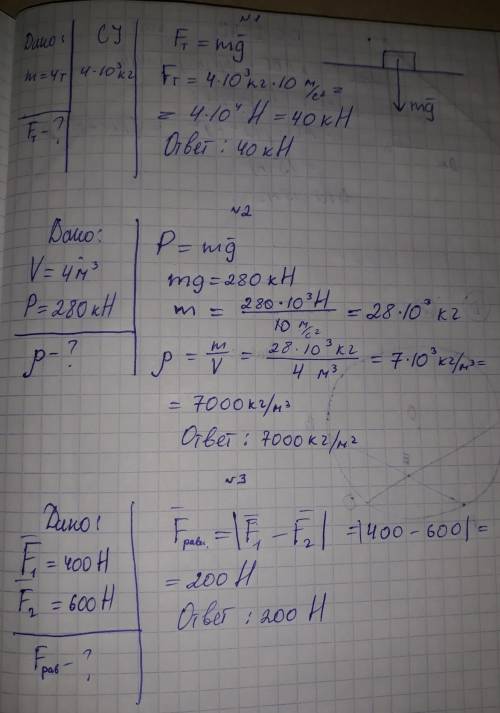 №1
Дано: СИ
m=4т 4·10³кг
Fт - ?
Fт = mg̅
Fт = 4·10³кг·10 м/с² =
= 4·10⁴ Н = 40кН
Ответ: 40кН
mg̅
№2
Дано:
V = 4м³
P = 280кН
ρ - ?
P = mg̅
mg = 280кН
m = 280·10³Н / 10 м/с² = 28·10³ кг
ρ = m/V = 28·10³ кг / 4 м³ = 7·10³ кг/м³ =
= 7000кг/м³
Ответ: 7000кг/м²
№3
Дано:
F̅₁ = 400Н
F̅₂ = 600Н
Fрав - ?
F̅равн. = |F̅₁ - F̅₂| = |400 - 600| =
= 200 Н
Ответ: 200 Н